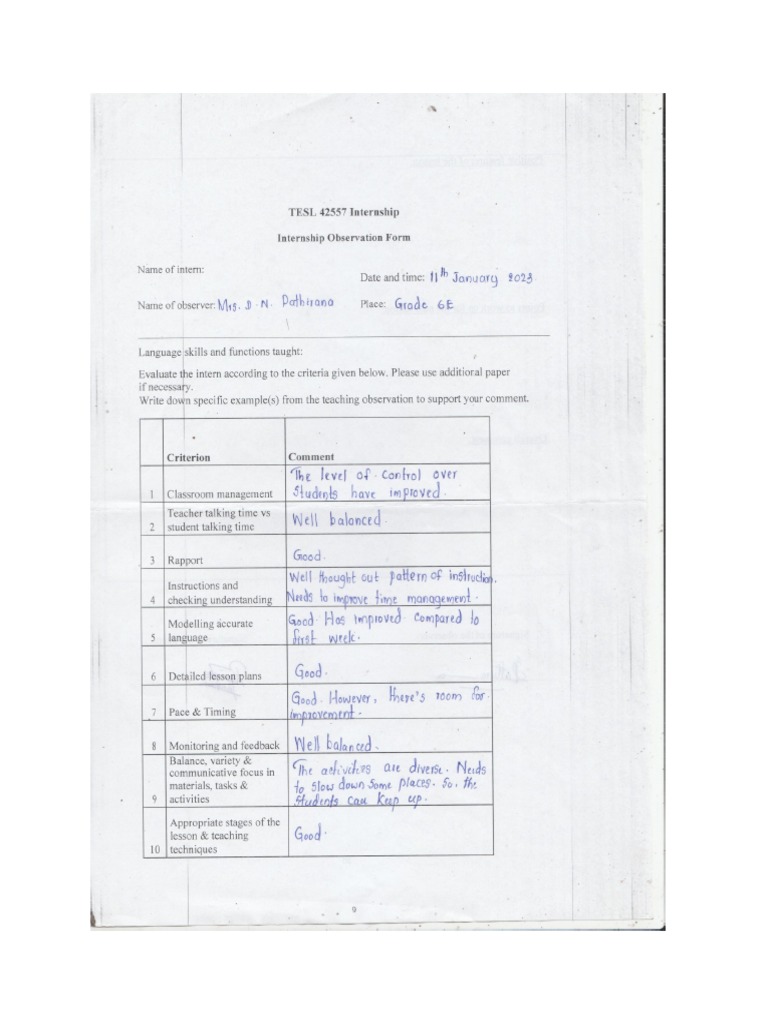 TESL 42557 Internship
Internship Observation Form
Name of intern:
Date and time: 11th January 2023.
Name of observer: Mrs. D. N. Pathirana
Place: Grade 6E
Language skills and functions taught:
Evaluate the intern according to the criteria given below. Please use additional paper
if necessary.
Write down specific example(s) from the teaching observation to support your comment.
Criterion Comment
1 Classroom management
The level of control over
students have improved.
Teacher talking time vs
2 student talking time
Well balanced.
3 Rapport
Good.
Instructions and
4 checking understanding
Well thought out pattern of instruction.
Needs to improve time management.
Modelling accurate
5 language
Good. Has improved compared to
first week.
6 Detailed lesson plans
Good.
7 Pace & Timing
Good. However, there's room for
improvement.
8 Monitoring and feedback
Well balanced.
Balance, variety &
communicative focus in
materials, tasks &
9 activities
The activities are diverse. Needs
to slow down some places. So, the
students can keep up.
Appropriate stages of the
lesson & teaching
10 techniques
Good.
9